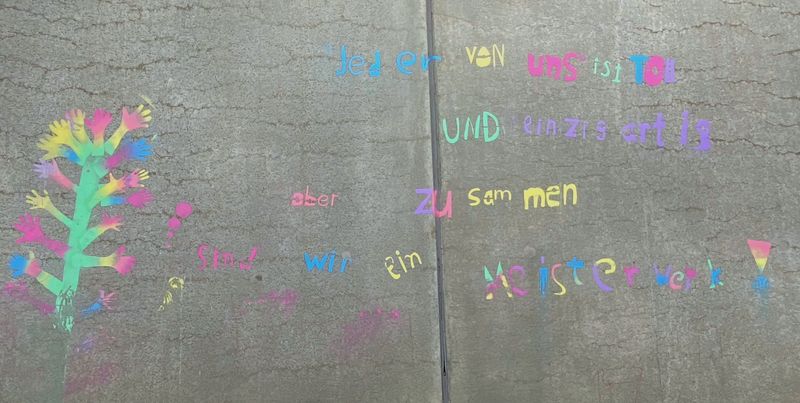 Jeder von uns ist Toll
UND einzigartig
aber zusammen
Sind wir ein Meisterwerk!